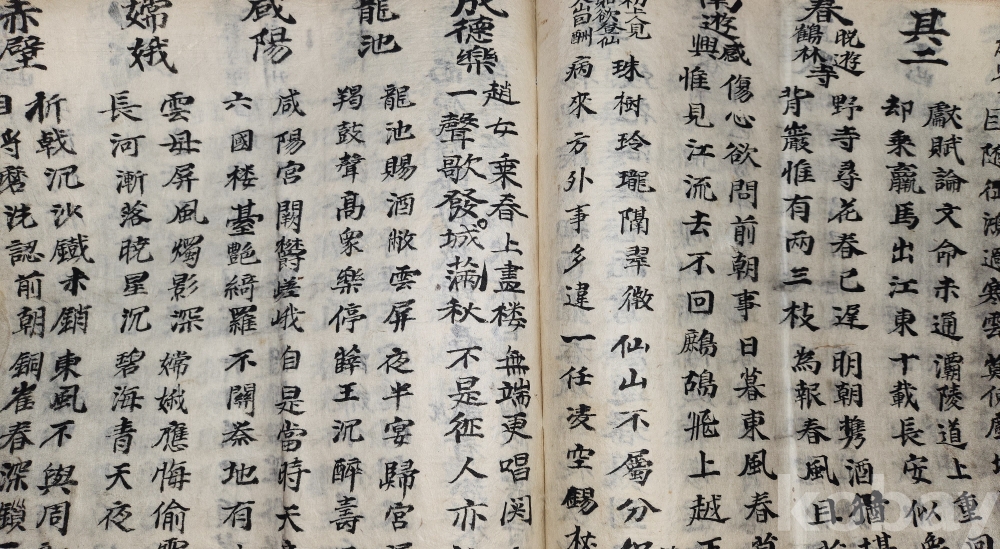 獻賦論文命未通 灞陵道上重
其二
却乘羸馬出江東 十載長安似
春晩遊鶴林寺
野寺尋花春已遅 明朝携酒猶堪
背巖惟有兩三枝 為報春風且
遊感興
傷心欲問前朝事 日暮東風春草
惟見江流去不回 鷓鴣飛上越王
珠樹玲瓏隔翠微 仙山不屬分
病來方外事多違 一任凌空錫杖
成德樂
趙女乗春上畫楼 無端更唱関
一聲歌發城滿秋 不是征人亦
龍池
龍池賜酒敞雲屏 夜半宴歸宮
羯鼓聲高衆樂停 薛王沉醉壽
咸陽
咸陽宮闕欝嵯峨 自是當時天
六國楼臺艶綺羅 不關秦地有
嫦娥
雲母屏風燭影深 嫦娥應悔偷
長河漸落曉星沉 碧海青天夜
赤壁
折戟沉沙鐵未銷 東風不與周
自将磨洗認前朝 銅雀春深鎖
kobay